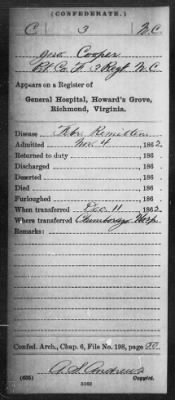 (CONFEDERATE.)
C 3 N.C.
Cooper
Pvt Co. H. 3 Regt N.C.
Appears on a Register of
General Hospital, Howard's Grove,
Richmond, Virginia.
Disease Febr. Remittens
Admitted Nov. 4 , 1862.
Returned to duty , 186 .
Discharged , 186 .
Deserted , 186 .
Died , 186 .
Furloughed , 186 .
When transferred Dec. 11 , 1862.
Where transferred Chimborazo Hosp.
Remarks:
Confed. Arch., Chap. 6, File No. 198, page
(635) Copyist.